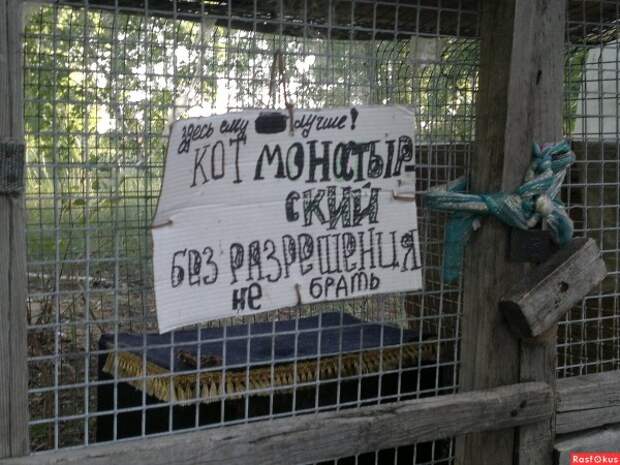 здесь ему лучше!
КОТ МОНАСТЫР-
СКИЙ
БЕЗ РАЗРЕШЕНИЯ
не БРАТЬ
RasFokus